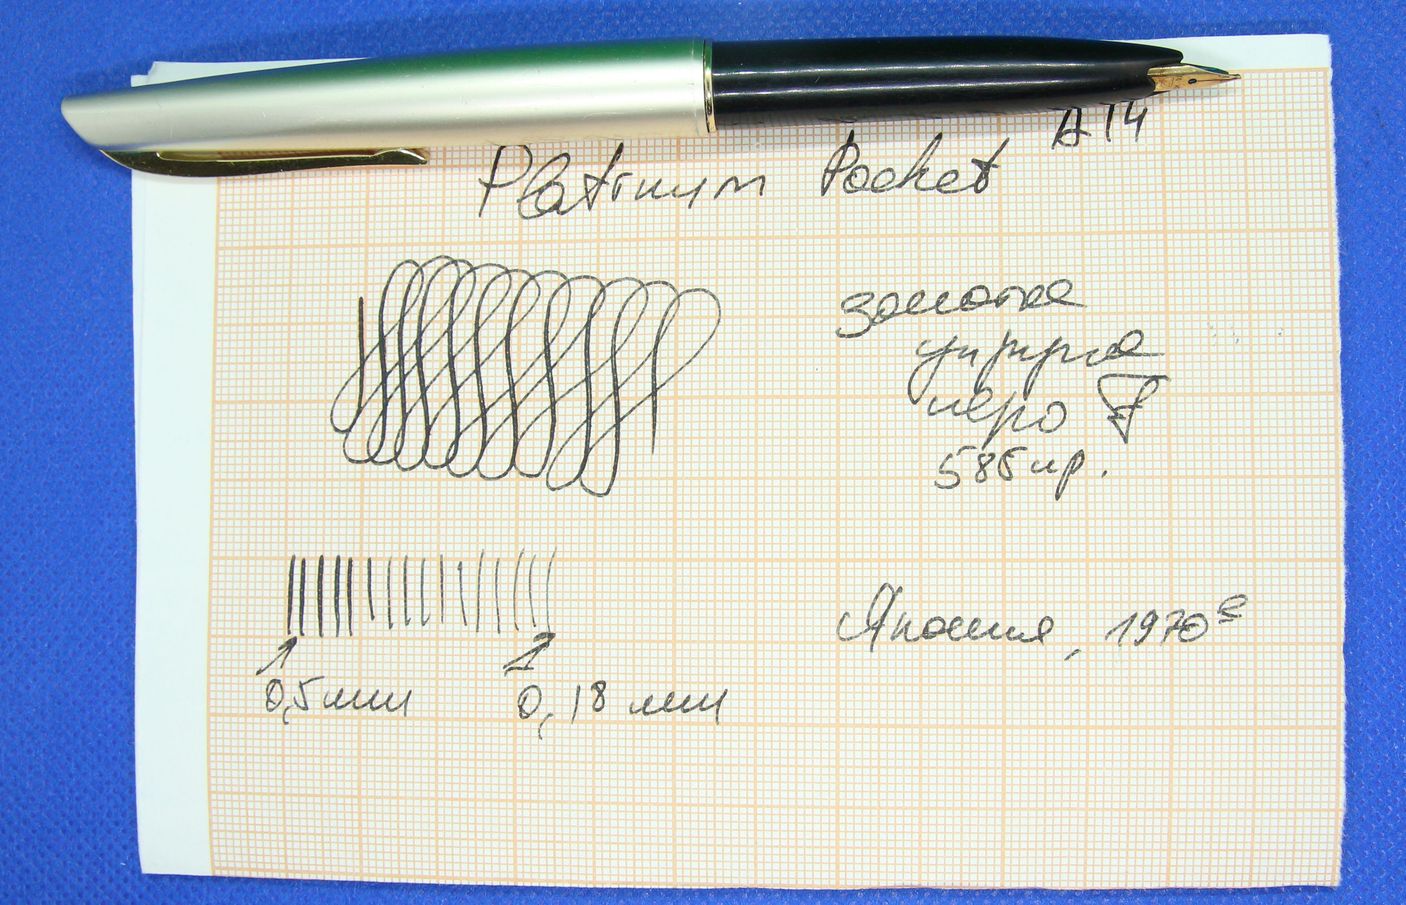 Platinum Pocket A14
золоте
пружне
перо F
585 пр.
Японія, 1970е
0,5 мм 0,18 мм